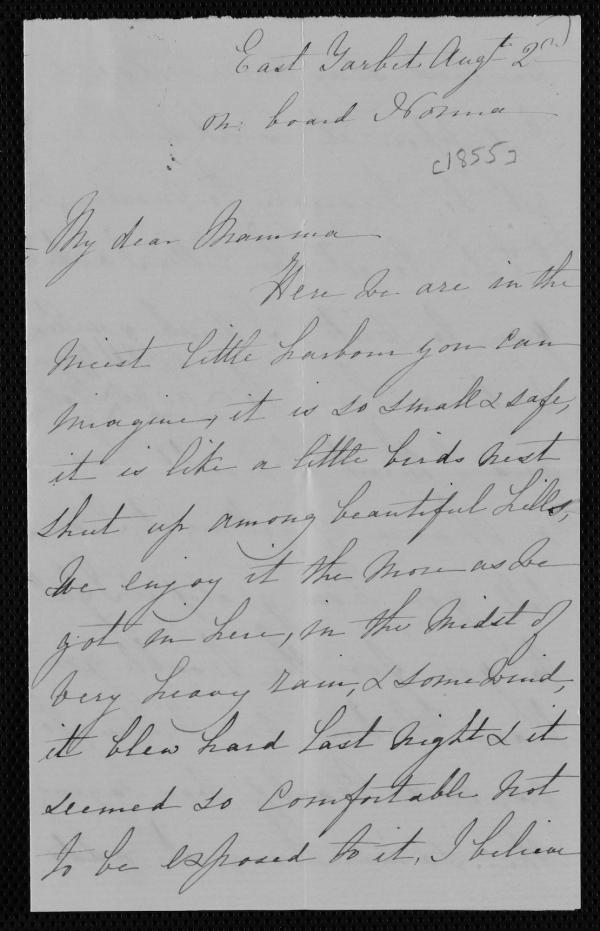 East Tarbet Augt 2nd
on board Norma
[1855]
My dear Mamma
Here we are in the
nicest little harbour you can
imagine, it is so small & safe,
it is like a little birds nest
shut up among beautiful hills,
we enjoy it the more as we
got in here, in the midst of
very heavy rain, & some wind,
it blew hard last night & it
seemed so comfortable not
to be exposed to it, I believe